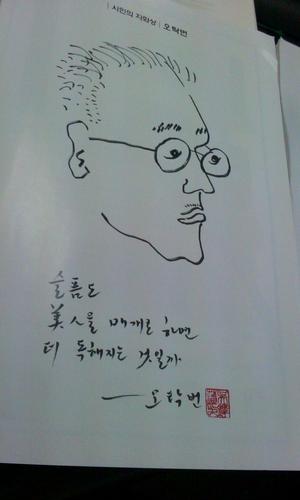 | 시인의 자화상 | 오탁번
슬픔도
美人을 매개로 하면
더 독해지는 것일까
— 오탁번